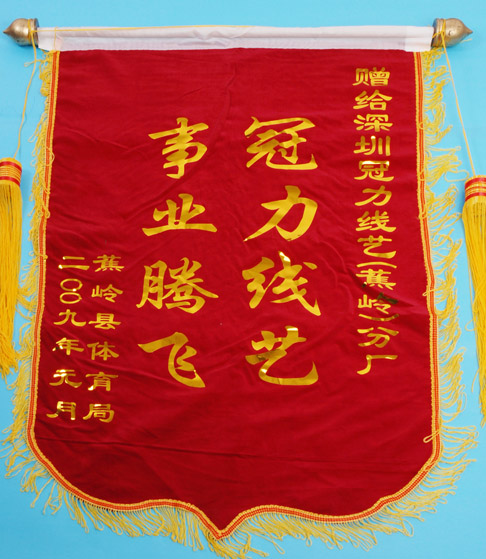 赠给深圳冠力线艺(蕉岭)分厂
冠力线艺
事业腾飞
蕉岭县体育局
二〇〇九年元月